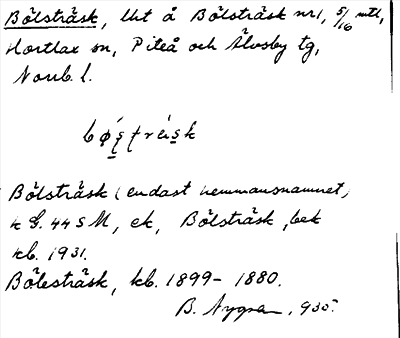 Bölsträsk, lht å Bölsträsk nr 1, 5/16 mtl,
Hortlax sn, Piteå och Älvsby tg,
Norrb. l.
Bölsträsk (endast hemmansnamnet,
44 S M, ek, Bölsträsk, bek
kb. 1931.
Bölesträsk, kb. 1899-1880.
B. 1930.